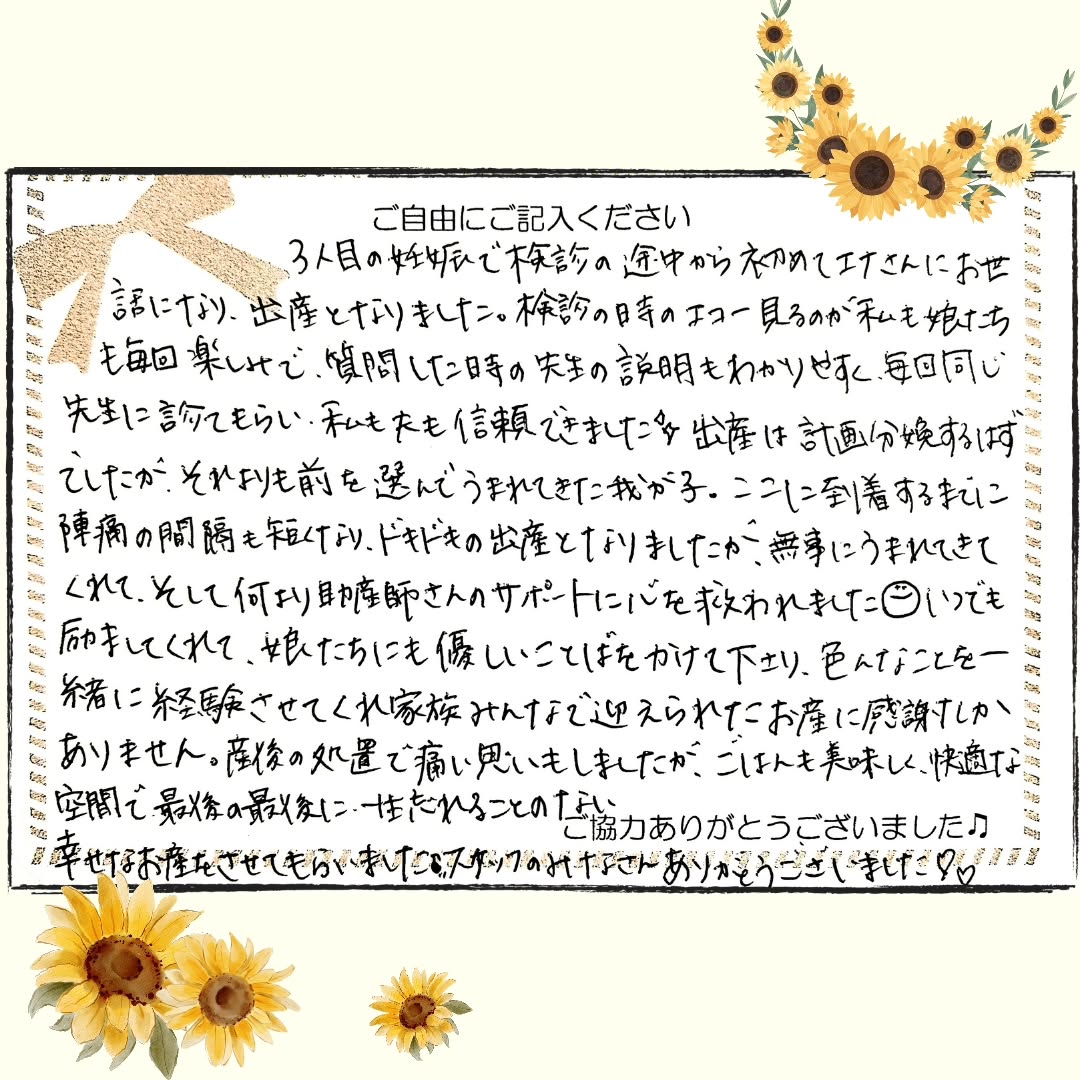 ご自由にご記入ください
3人目の妊娠で検診の途中から初めてエナさんにお世
話になり、出産となりました。検診の時のエコー見るのが私も娘たち
も毎回楽しみで、質問した時の先生の説明もわかりやすく、毎回同じ
先生に診てもらい、私も夫も信頼できました☆出産は計画分娩するはず
でしたが、それよりも前を選んでうまれてきた我が子。ここに到着するまでに
陣痛の間隔も短くなり、ドキドキの出産となりましたが、無事にうまれてきて
くれて、そして何より助産師さんのサポートに心を救われました☺いつでも
励ましてくれて、娘たちにも優しいことばをかけて下さり、色んなことを一
緒に経験させてくれ家族みんなで迎えられたお産に感謝しか
ありません。産後の処置で痛い思いもしましたが、ごはんも美味しく、快適な
空間で最後の最後に、一生忘れることのない
ご協力ありがとうございました♫
幸せなお産をさせてもらいました。スタッフのみなさんありがとうございました♡♡